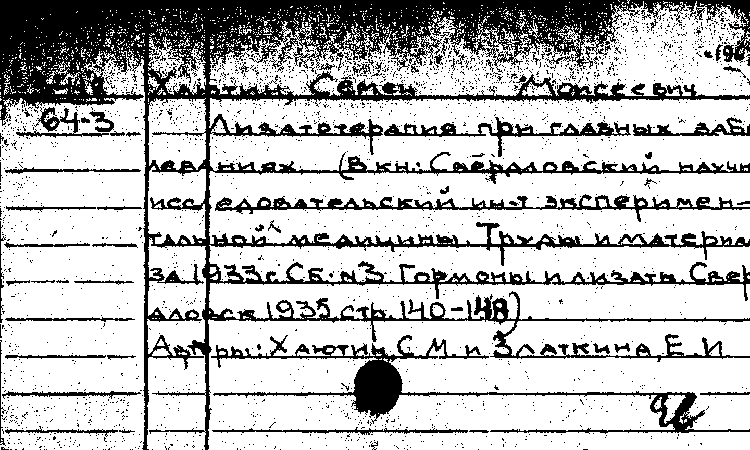 Хаютин, Семен Моисеевич
64-3
Лизатотерапия при глазных забо
леваниях. (В кн.: Свердловский научн
исследовательский ин-т эксперимен-
тальной медицины. Труды и материалы
за 1933 г. Сб. №3. Гормоны и лизаты. Свер
дловск 1935, стр. 140-148).
Авторы: Хаютин, С.М. и Златкина, Е.И